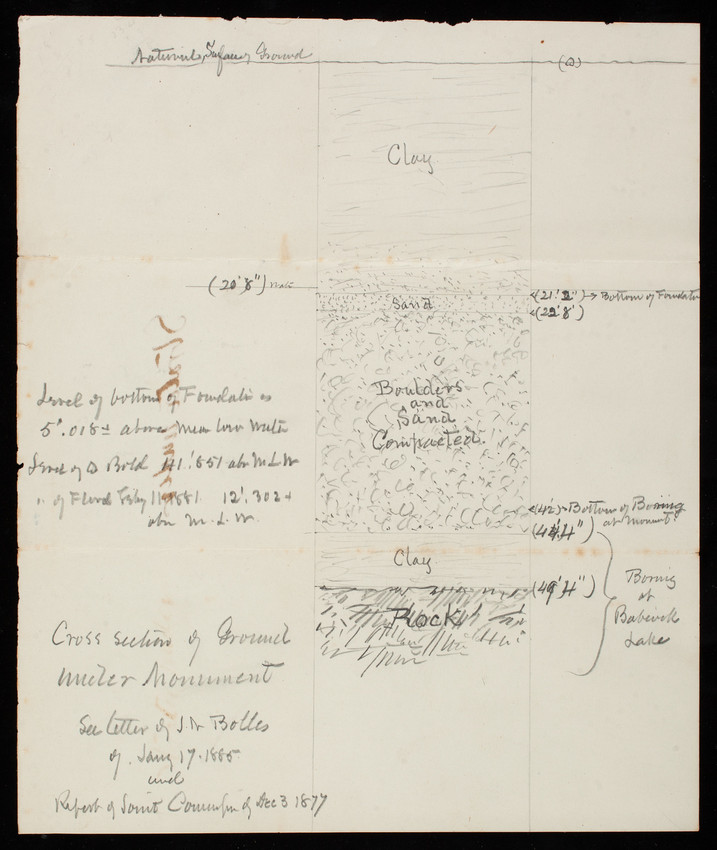 Natural Surface of Ground
(0)
Clay
(20' 8") Water
Sand
(21' 2") → Bottom of Foundation
(22' 8')
Level of bottom of Foundation is
5'.018± above Mean low water
Level of Bold 111'.851 abv M L W
" of Flood Feby 11 1881 12'.302+
abv M. L. W.
Boulders
and
Sand
Compacted.
(42) → Bottom of Boring
at Monumt.
(44' 4")
Clay
(49' 4")
Boring
at
Babcock
Lake
Rock
Cross section of Ground
under Monument
See letter of Bolles
of Jany 17. 1885
and
Report of Joint Commssn of Dec 3 1877